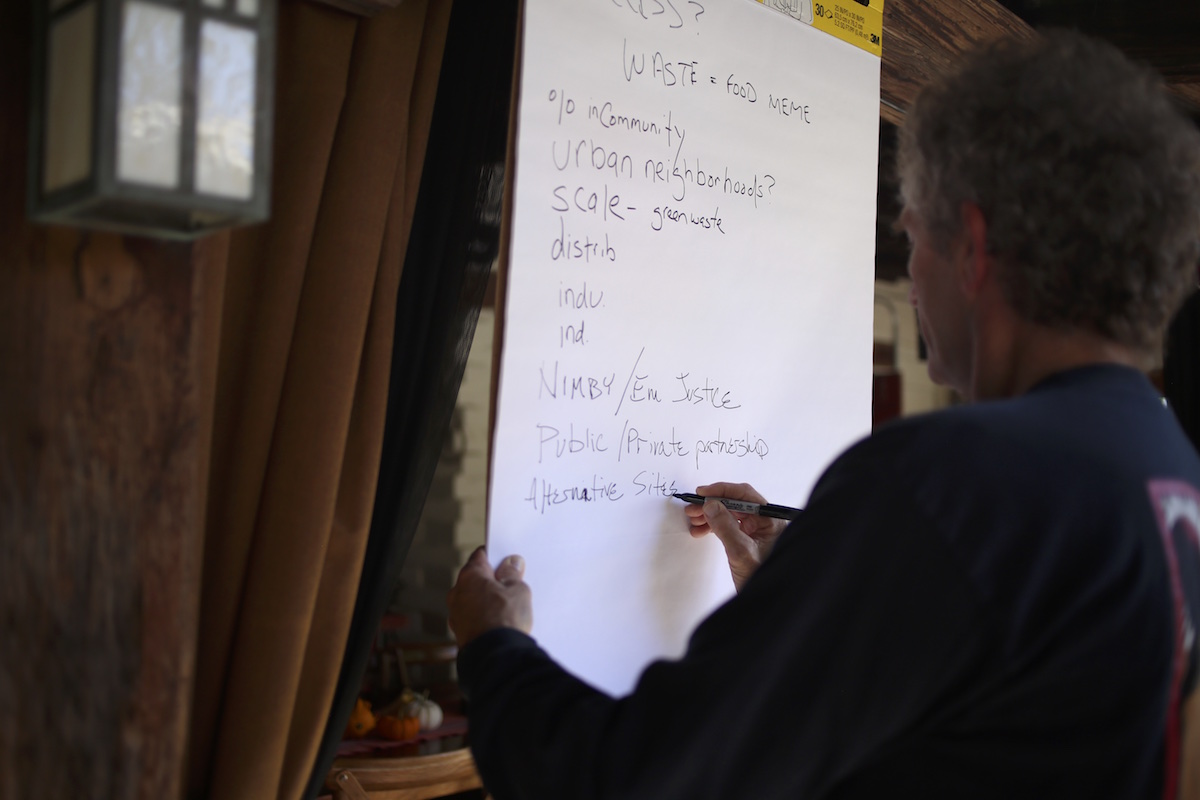 WASTE = FOOD MEME
% in Community
urban neighborhoods?
scale - green waste
distrib
indv.
ind.
NIMBY / Env Justice
Public / Private partnership
Alternative Sites
30
3M